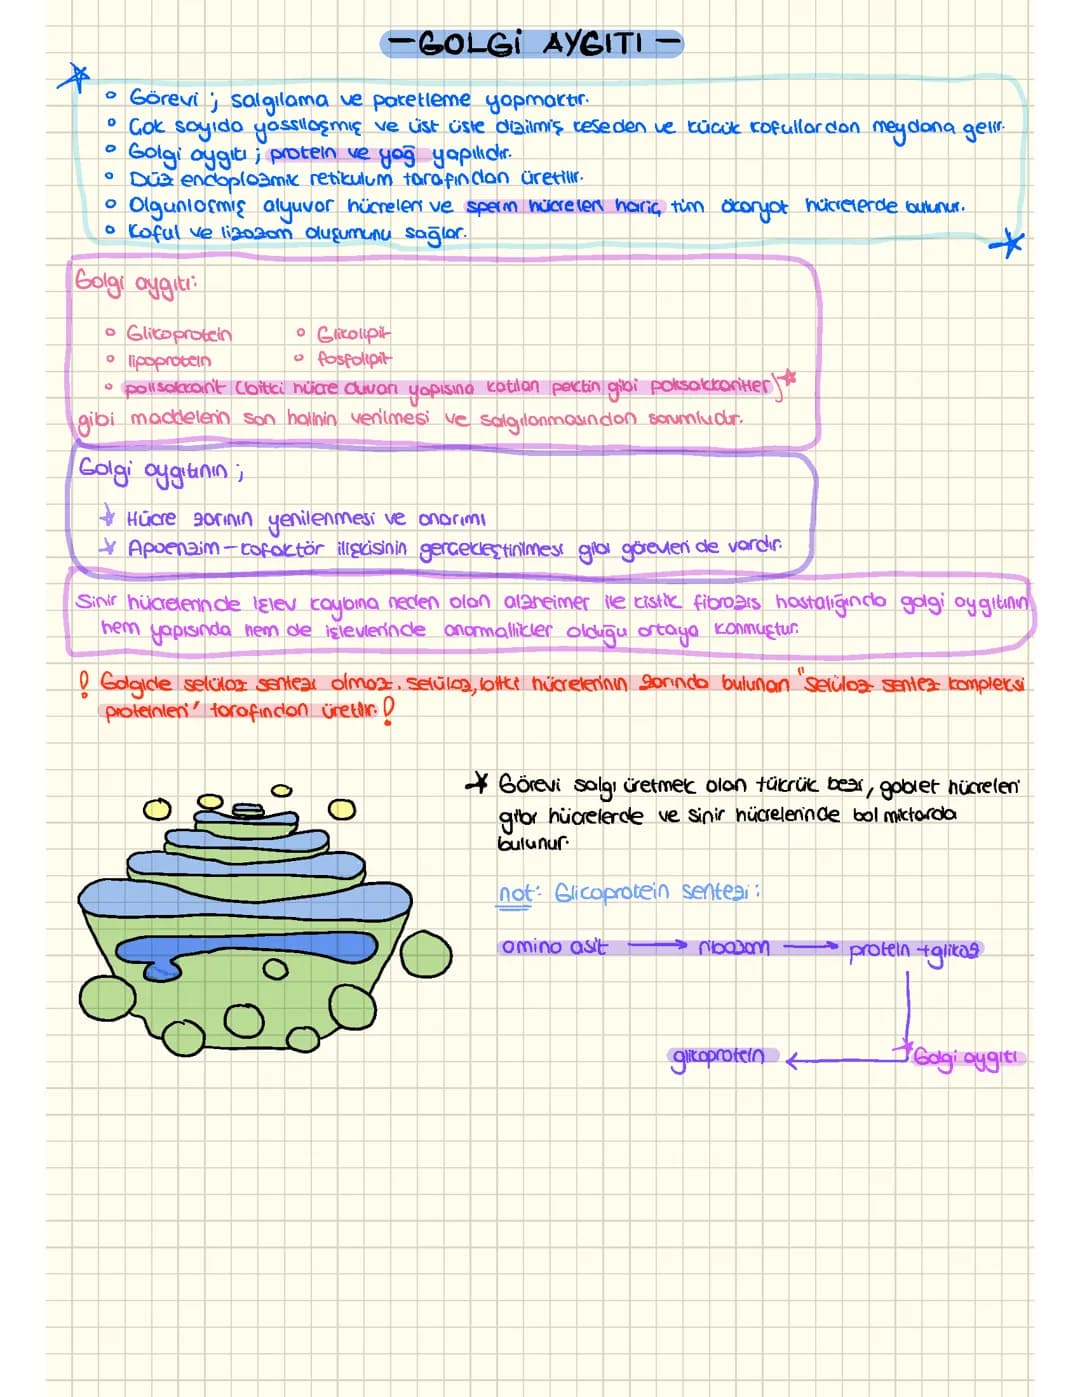 -GOLGİ AYGITI-
Görevi ; salgılama ve paketleme yapmaktır.
Çok sayıda yassılaşmış ve üst üste dizilmiş keseden ve küçük kofullardan meydana gelir.
Golgi aygıtı ; protein ve yağ yapılıdır.
Düz endoplazmik retikulum tarafından üretilir.
Olgunlaşmış alyuvar hücreleri ve sperm hücreleri hariç tüm ökaryot hücrelerde bulunur.
Koful ve lizozom oluşumunu sağlar.
Golgi aygıtı:
Glikoprotein Glikolipit
lipoprotein fosfolipit
polisakkarit (bitki hücre duvarı yapısına katılan pektin gibi polisakkaritler)
gibi maddelerin son halinin verilmesi ve salgılanmasından sorumludur.
Golgi aygıtının ;
Hücre zarının yenilenmesi ve onarımı
Apoenzim-kofaktör ilişkisinin gerçekleştirilmesi gibi görevleri de vardır.
Sinir hücrelerinde işlev kaybına neden olan alzheimer ile kistik fibrozis hastalığında golgi aygıtının
hem yapısında hem de işlevlerinde anormallikler olduğu ortaya konmuştur.
! Golgide selüloz sentezi olmaz. Selüloz, bitki hücrelerinin zarında bulunan "Selüloz sentez kompleksi
proteinleri" tarafından üretilir. !
Görevi salgı üretmek olan tükrük bezi, goblet hücreleri
gibi hücrelerde ve sinir hücrelerinde bol miktarda
bulunur.
not: Glicoprotein sentezi :
amino asit → ribozom → protein + glikoz
glikoprotein ← Golgi aygıtı